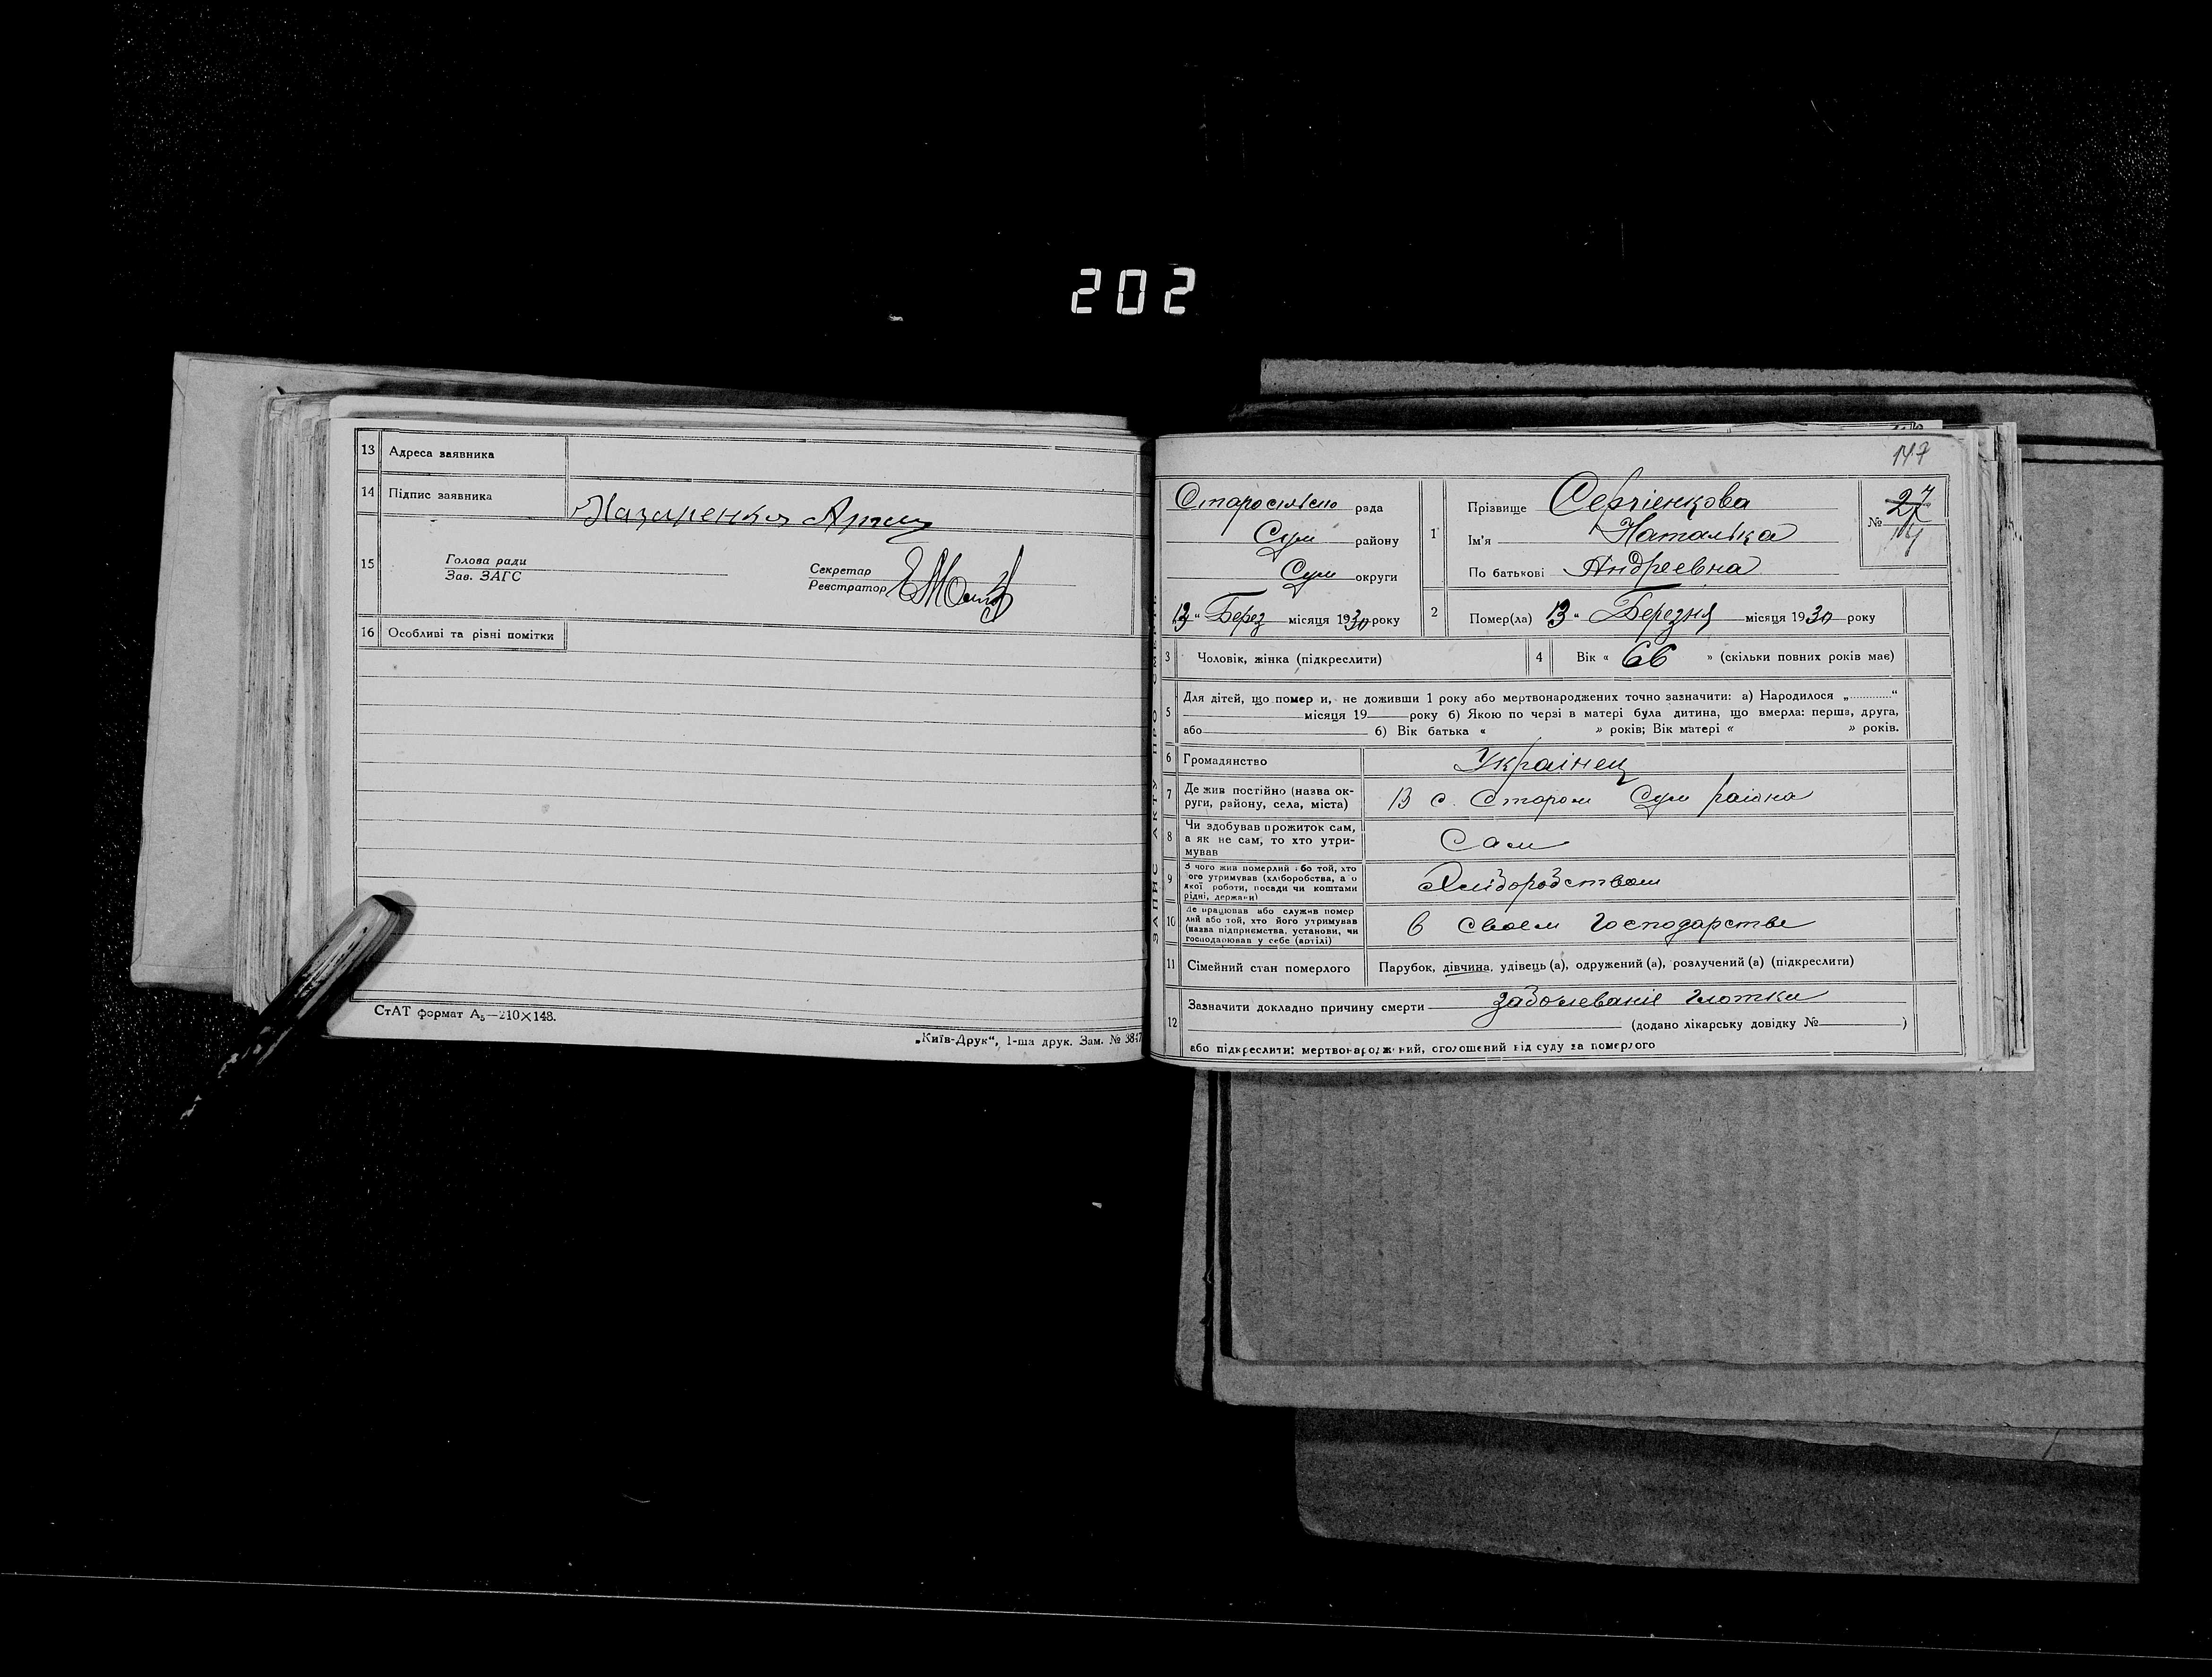 202
13 Адреса заявника
14 Підпис заявника Назаренко
15 Голова ради
Зав. ЗАГС
Секретар
Реєстратор
16 Особливі та різні помітки
СтАТ формат А5—210×148.
„Київ-Друк“, 1-ша друк. Зам. № 3847
147
ЗАПИС АКТУ ПРО СМЕРТЬ
рада
Сум району
Сум округи
13 „ Берез місяця 1930 року
1 Прізвище Сергіенкова
Ім'я Наталка
По батькові Андреевна
№ 27
2 Помер(ла) 13 „ Березня місяця 1930 року
3 Чоловік, жінка (підкреслити)
4 Вік « 66 » (скільки повних років має)
5 Для дітей, що померли, не доживши 1 року або мертвонароджених точно зазначити: а) Народилося „ “
місяця 19 року б) Якою по черзі в матері була дитина, що вмерла: перша, друга,
або б) Вік батька « » років; Вік матері « » років.
6 Громадянство Украінец
7 Де жив постійно (назва ок-
руги, району, села, міста) В с. Старом Сум раіона
8 Чи здобував прожиток сам,
а як не сам, то хто утри-
мував Сам
9 З чого жив померлий або той, хто
його утримував (хліборобства, а о
якої роботи, посади чи коштами
рідні, держави) Хлібородством
10 Де працював або служив помер
лий або той, хто його утримував
(назва підприємства, установи, чи
господарював у себе (артілі) в своем господарстве
11 Сімейний стан померлого Парубок, дівчина, удівець (а), одружений (а), розлучений (а) (підкреслити)
12 Зазначити докладно причину смерти заболеваніе глотки
(додано лікарську довідку № )
або підкреслити: мертвонароджений, оголошений від суду за померлого